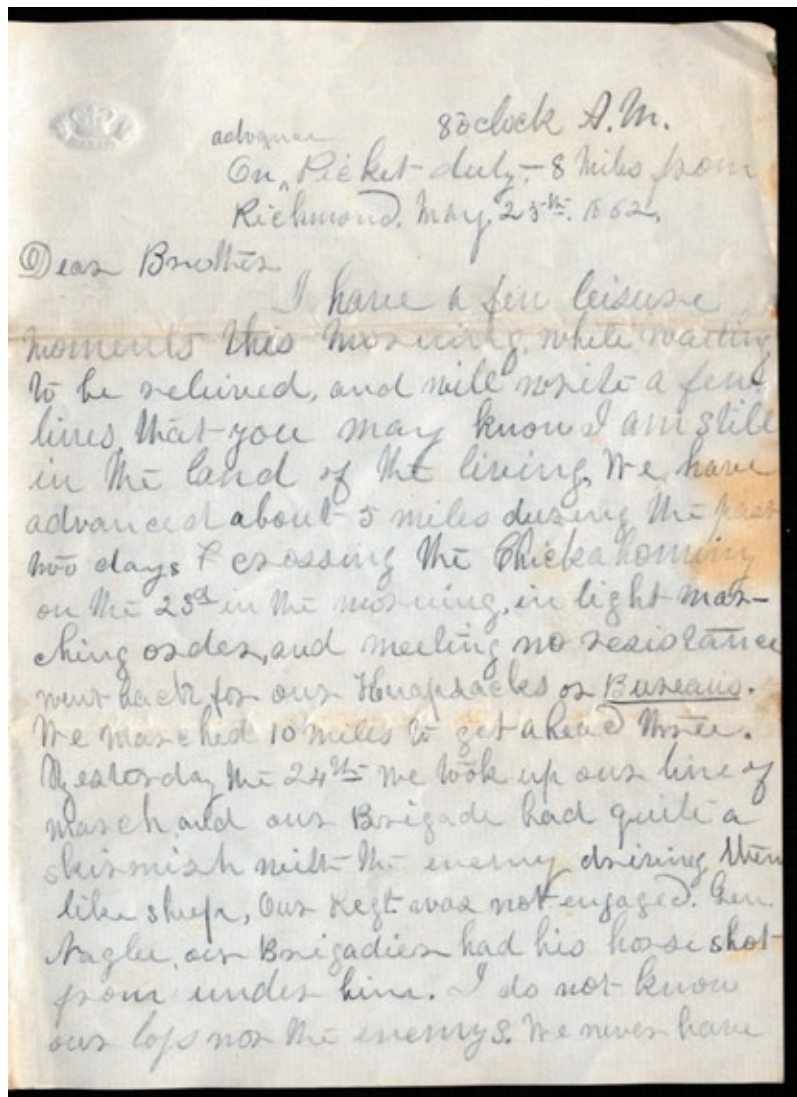 8 oclock A.M.
advance
On Picket duty,- 8 Miles from
Richmond. May, 25th. 1862.
Dear Brother
I have a few leisure
moments this morning, while waiting
to be relieved, and will write a few
lines, that you may know I am still
in the land of the living, We have
advanced about 5 miles during the past
two days & crossing the Chickahominy
on the 23d in the morning, in light mar-
ching order, and meeting no resistance
went back for our Knapsacks or Bureaus.
We marched 10 miles to get ahead three.
Yesterday the 24th we took up our line of
march, and our Brigade had quite a
skirmish with the enemy driving them
like sheep, Our Regt. was not engaged. Gen.
Naglee, our Brigadier had his horse shot
from under him. I do not know
our loss nor the enemys. We never have